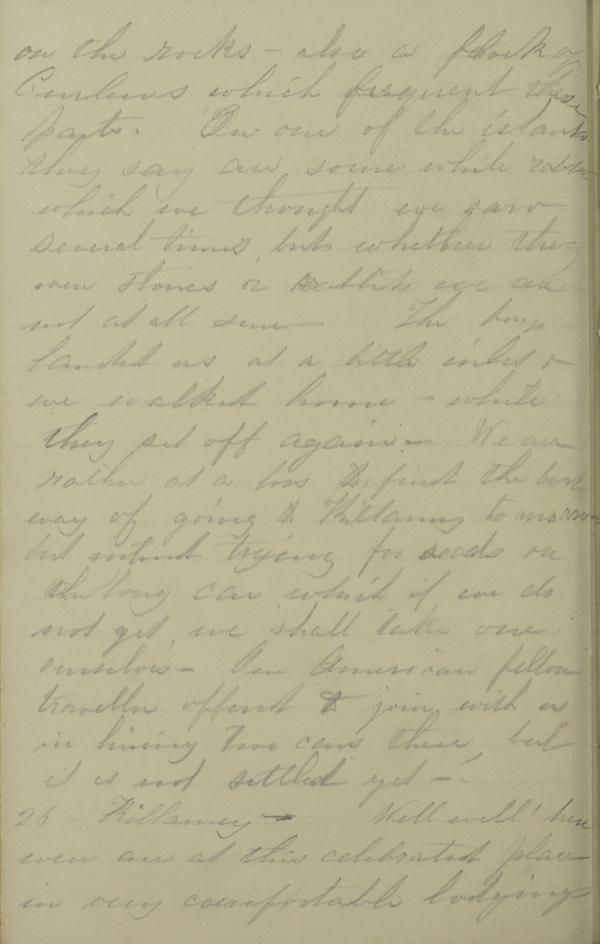 on the rocks - also a flock of
Curlews which frequent these
parts. On one of the islands
they say are some white rabbits
which we thought we saw
several times, but whether they
were stones or rabbits we are
not at all sure - The boys
landed us at a little inlet &
we walked home - while
they set off again - We are
rather at a loss to find the best
way of going to Killarney to morrow
but intend trying for seats on
the long car which if we do
not get, we shall take one
ourselves - Our American fellow
traveller offered to join with us
in hiring two cars there, but
it is not settled yet -
26 - Killarney - Well well! here
we are at this celebrated place
in very comfortable lodgings